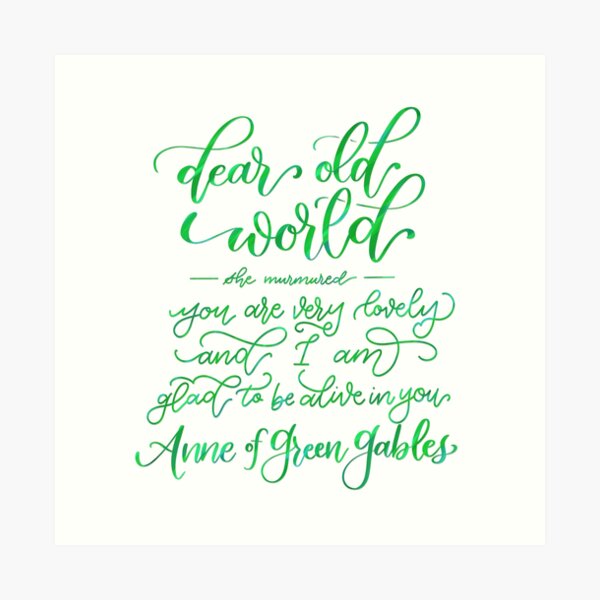 dear old
world
— she murmured —
you are very lovely
and I am
glad to be alive in you
Anne of Green Gables